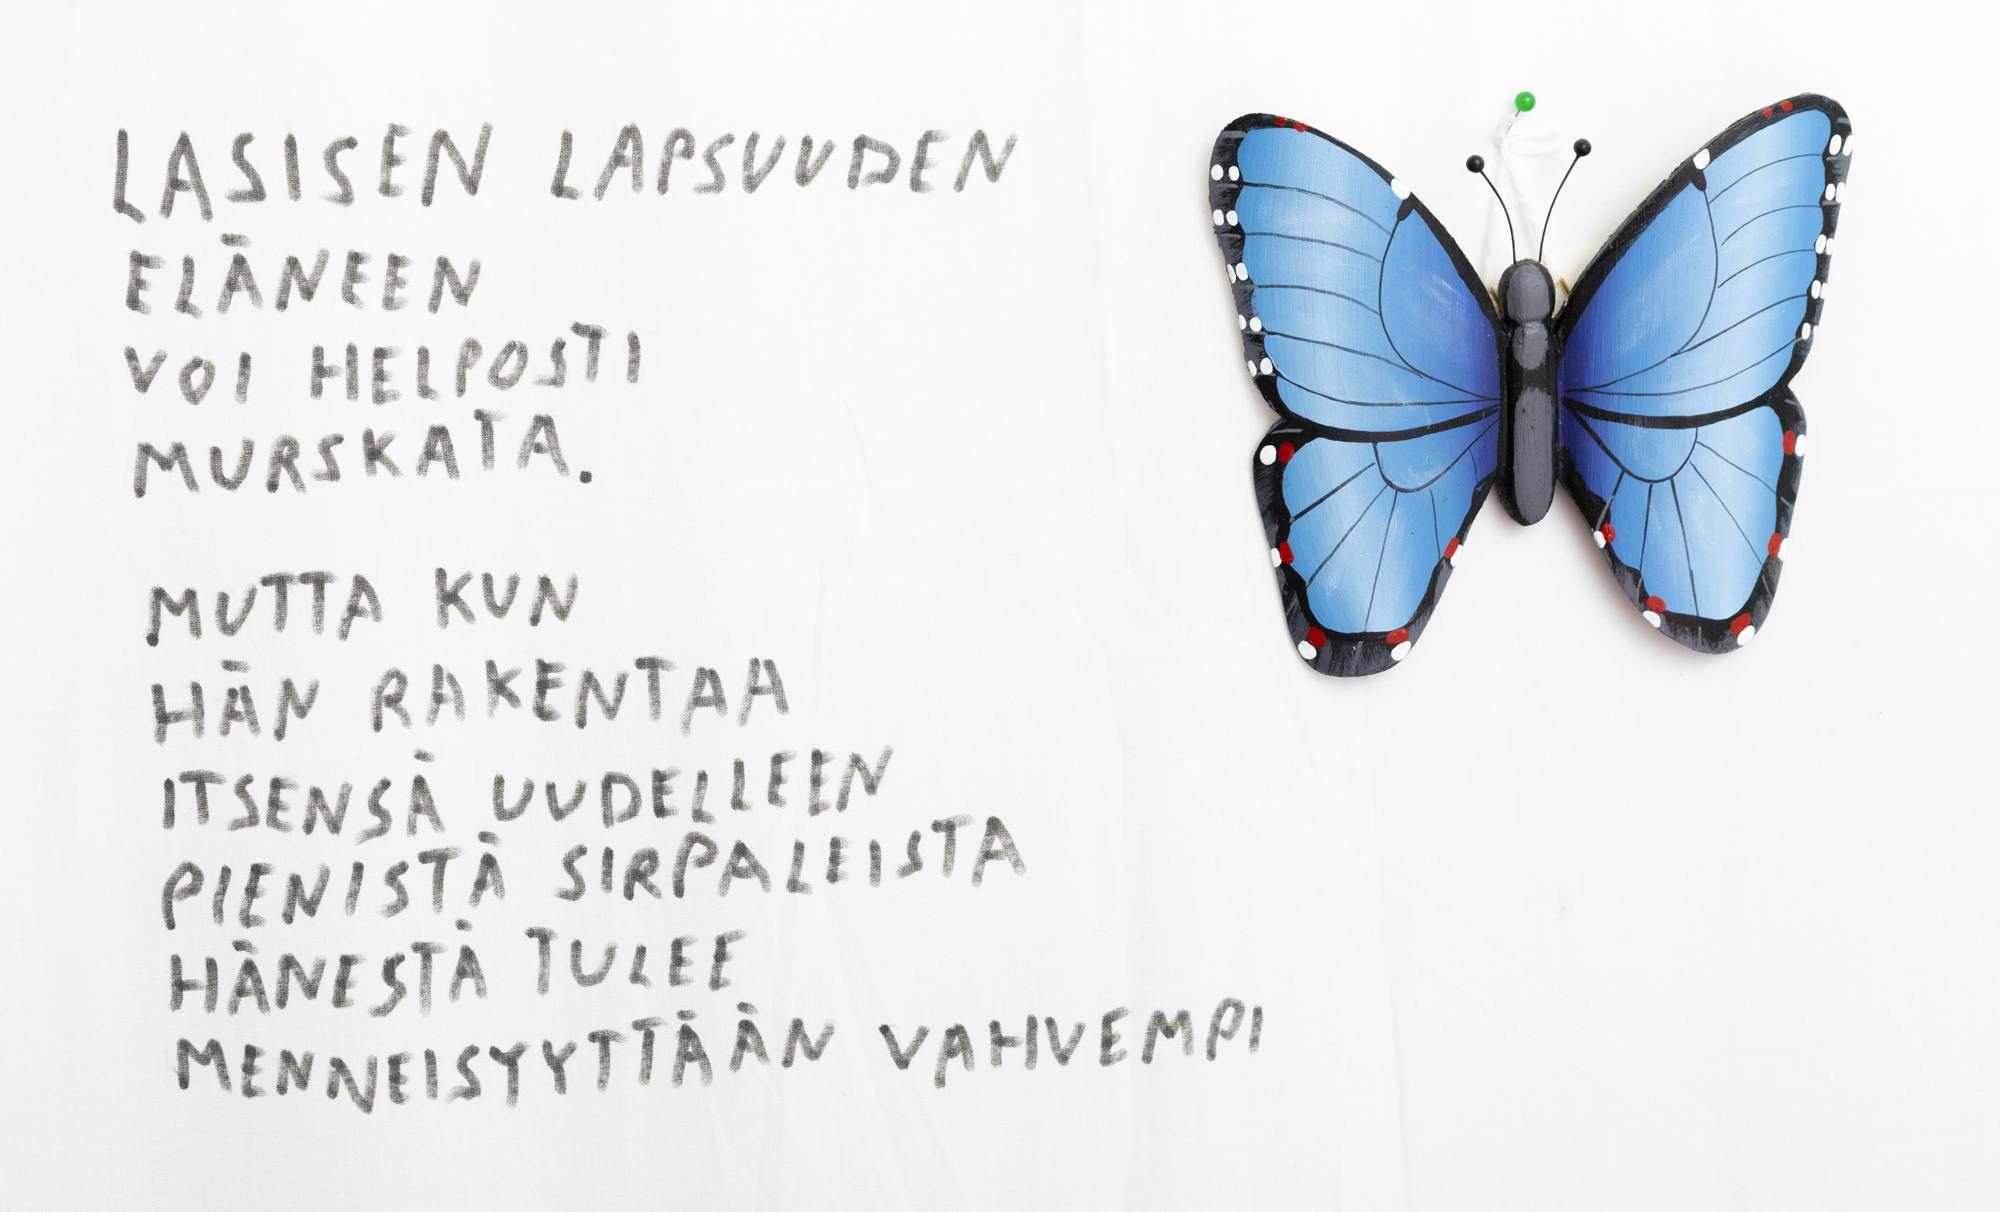 LASISEN LAPSUUDEN
ELÄNEEN
VOI HELPOSTI
MURSKATA.
MUTTA KUN
HÄN RAKENTAA
ITSENSÄ UUDELLEEN
PIENISTÄ SIRPALEISTA
HÄNESTÄ TULEE
MENNEISYYTTÄÄN VAHVEMPI